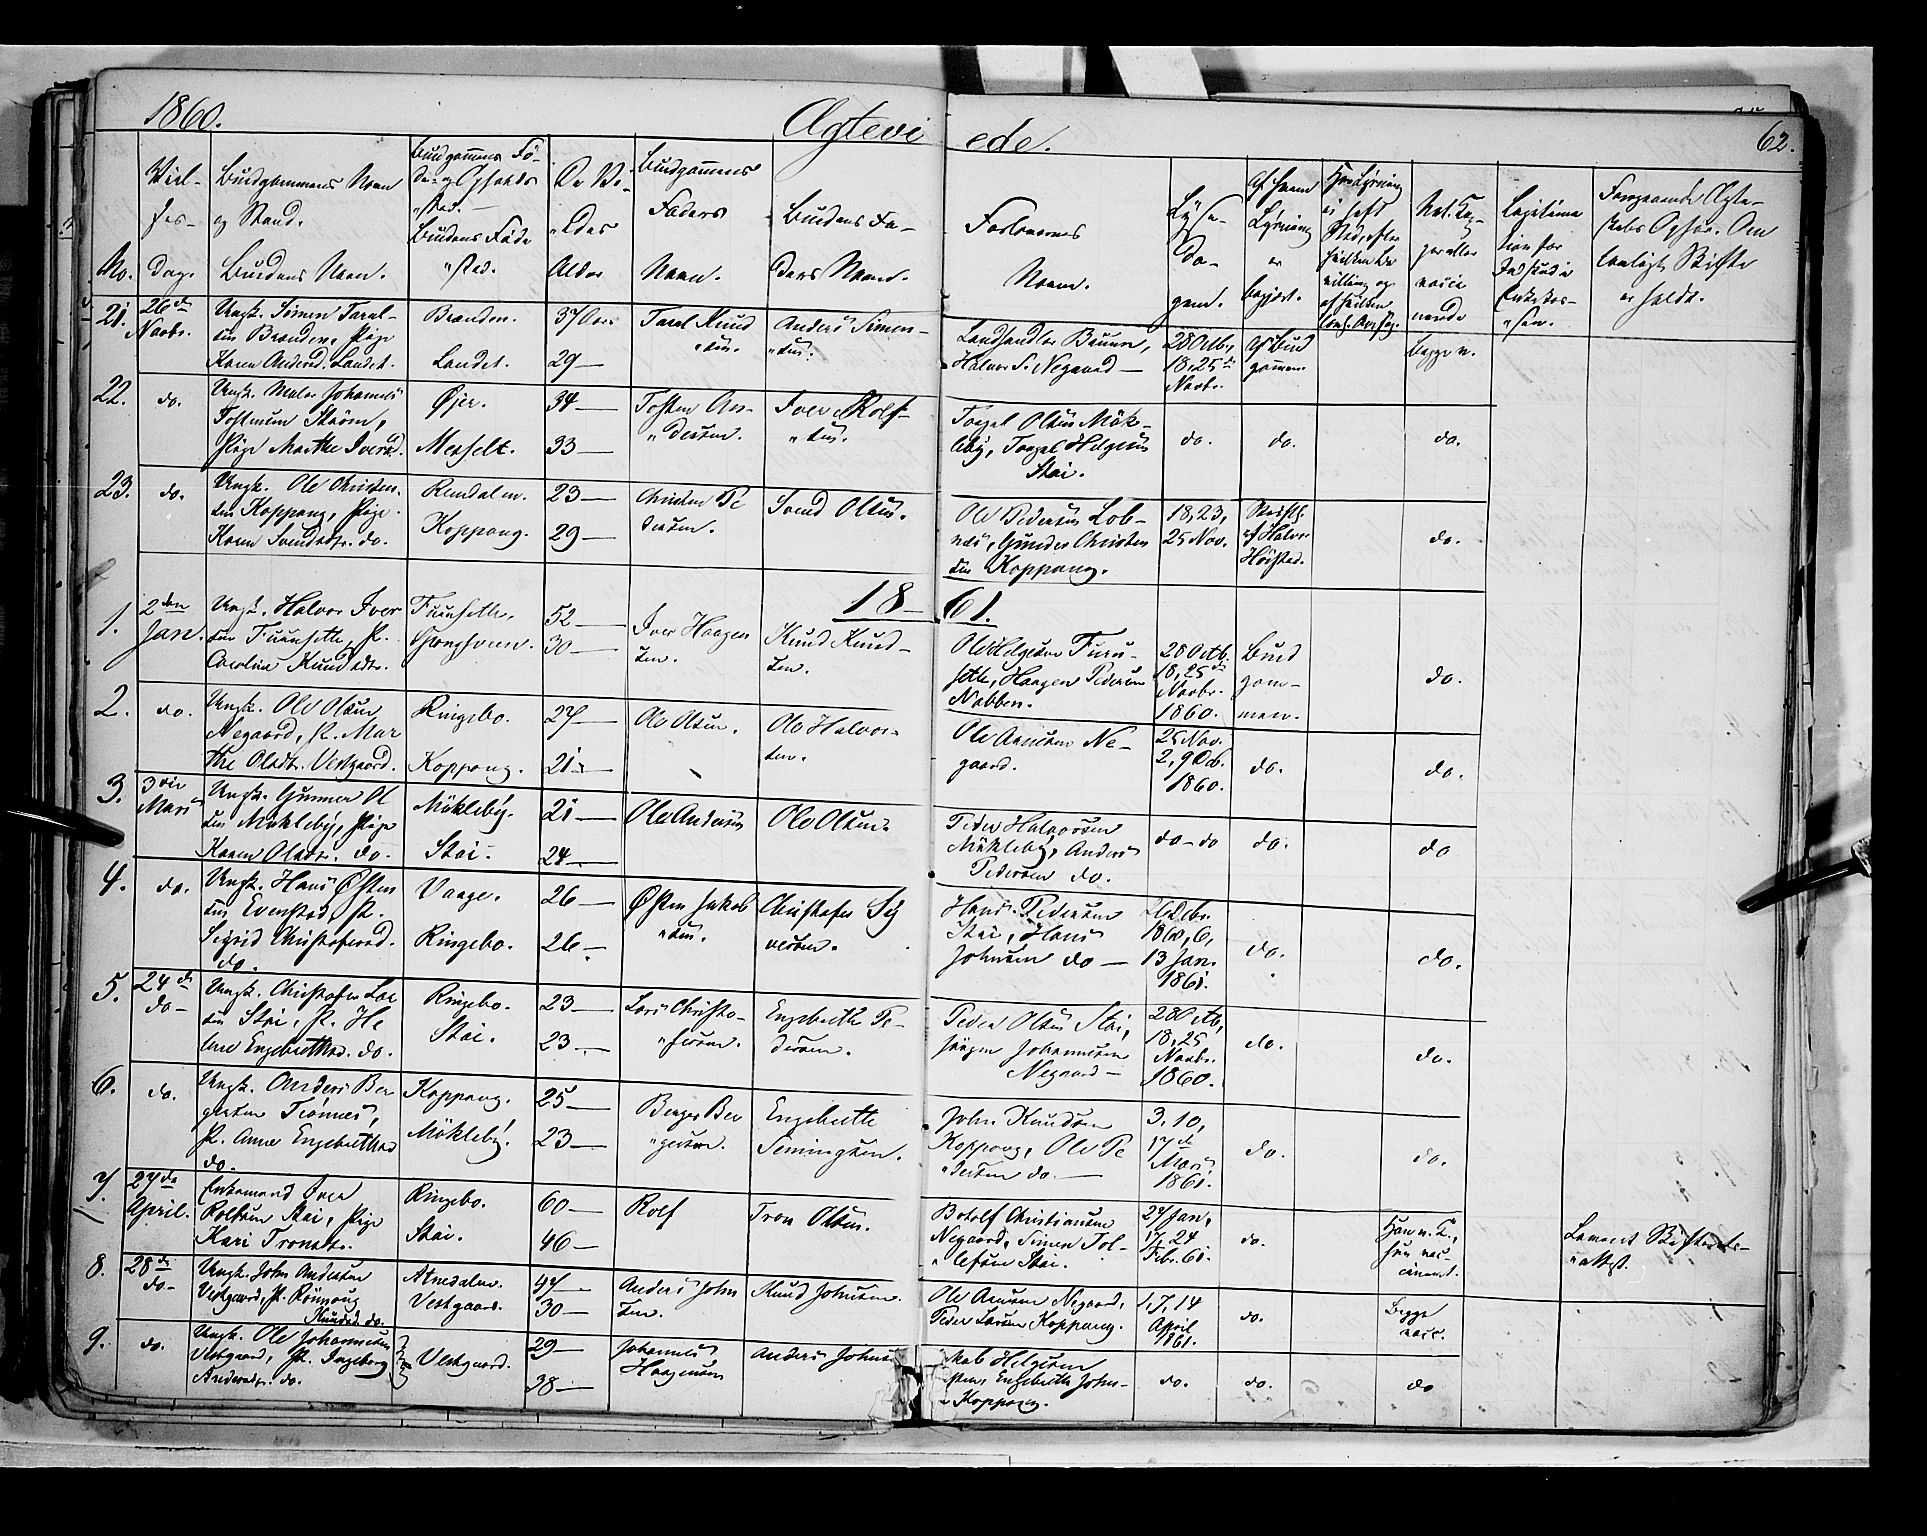 1860.
Ægtevi ede.
62.
No.
Viel-
ses-
Dag.
Brudgommens Navn
og Stand.
Brudens Navn.
Brudgommens Fö-
Brudens Föde
"sted.
De Vi-
"edes
Alder
Brudgommens
Faders
Navn.
Brudens Fa-
ders Navn.
Forlovernes
Navn.
Lysn.
Da-
gene.
Af hvem
Lysning
er
begjert.
Nat. Kop-
per eller
vacci
nerede
Foregaaende Ægte-
er holdt.
21.
26de
Novbr.
Ungk. Simen Taral-
sen Brænden, Pige
Karen Andersd. Landet.
Brænden.
Landet.
37 Aar
29 —
Taral Knud
"sen.
Anders Simen-
"sen.
Landhandler Bruun,
Halvor S. Negaard —
28 Octbr.,
18, 25de
Novbr.
Af Brud
gommen
begge v.
22.
do.
Ungk. Maler Johannes
Tostensen Ström,
Pige Marthe Iversd.
Øjer.
Messelt.
34 —
33 —
Tosten An-
"dersen.
Iver Rolf-
"sen.
Torgel Olsen Mök-
leby, Torgel Helgesen
Stai.
do.
do.
do.
23.
do.
Ungk. Ole Christen-
sen Koppang, Pige
Karen Svendsdtr. do.
Rendalen.
Koppang.
23 —
29 —
Christen Pe
dersen.
Svend Olsen.
Ole Pedersen Lob-
næs, Gunder Christen
sen Koppang.
18, 23,
25 Nov.
af Halvor
Höistad.
do.
18— 61.
1.
2den
Jan.
Ungk. Halvor Iver
sen Furusethe, P.
Caroline Knudsdtr.
Furusethe.
52 —
30 —
Iver Haagen
sen.
Knud Knud-
sen.
Ole Helgesen Furu-
sethe, Haagen Pedersen
Nabben.
28 Octb.
18, 25de
Novbr.
1860.
Brud
gom-
men.
do.
2.
do.
Ungk. Ole Olsen
Negaard, P. Mar
the Olsdtr. Vestgaard.
Ringebo.
Koppang.
27 —
21 —
Ole Olsen.
Ole Halvor-
sen.
Ole Arnesen Ne-
gaard.
25 Nov.
2, 9 Dcb.
1860.
do.
do.
3.
3die
Mars
Ungk. Gunner Ol
sen Mökleby, Pige
Karen Olsdtr. do.
Mökleby.
Stai.
21 —
24 —
Ole Andersen
Ole Olsen
Peder Halvorsen
Mökleby, Anders
Pedersen do.
do — do
do.
do
4.
do.
Ungk. Hans Østen
sen Evenstad, P.
Sigrid Christofersd.
do.
Vaage.
Ringebo.
26 —
26 —
Østen Jakob
"sen.
Christofer Sy
versen.
Hans Pedersen
Stai, Hans
Johnsen do —
26 Dcbr.
1860, 6,
13 Jan.
1861.
do.
do.
5.
24de
do —
Ungk. Christofer Lar
sen Stai, P. He
lene Engebrethsd. do.
Ringebo.
Stai.
23 —
23 —
Lars Christo-
"fersen.
Engebreth Pe-
dersen.
Peder Olsen Stai,
Jörgen Johannesen
Negaard —
28 Octb.,
18, 25
Novbr.
1860.
do.
do.
6.
do.
Ungk. Anders Ber
gersen Tiönnes,
P. Anne Engebrethsd
do.
Koppang.
Mökleby.
25 —
23 —
Berger Ber
"gersen.
Engebreth
Simingsen.
John Knudsen
Koppang, Ole Pe
"dersen do. —
3, 10,
17de
Mars
1861.
do.
do.
7.
27de
April.
Enkemand Iver
Rolfsen Stai, Pige
Kari Tronsdtr.
Ringebo.
Stai.
60 —
46 —
Rolf
Tron Olsen.
Botolf Christiansen
Negaard, Simen Tol-
"lefsen Stai.
27 Jan,
17, 24
Febr. 61.
do.
Han n. K.,
hun vac-
cineret.
Leveret Skifterets-
"attest.
8.
28de
do —
Ungk. John Andersen
Vestgaard, P. Rönnaug
Knudsd. do.
Atnedalen.
Vestgaard.
47 —
30 —
Anders John
sen.
Knud Johnsen.
Ole Arnesen Negaard,
Peder Larsen Koppang.
1, 7, 14
April
1861.
do.
Begge
vacc.
9.
do.
Ungk. Ole Johannesen
Vestgaard, P. Ingeborg
Andersdtr. do.
Vestgaard.
29 —
38 —
Johannes
Haagensen
Anders Johns
Helgesen
Engebreth John-
Koppang.
do.
do.
do